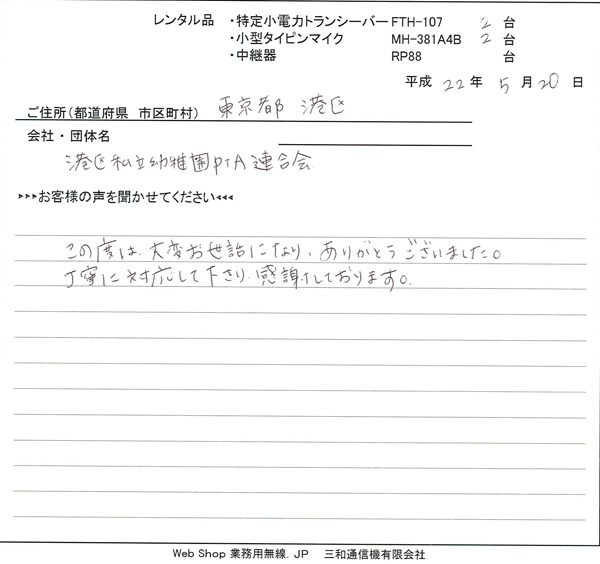 レンタル品 ・特定小電力トランシーバー FTH-107 2 台
・小型タイピンマイク MH-381A4B 2 台
・中継器 RP88 台
平成 22 年 5 月 20 日
ご住所(都道府県 市区町村) 東京都 港区
会社・団体名
港区私立幼稚園PTA連合会
▸▸▸お客様の声を聞かせてください◂◂◂
この度は、大変お世話になり、ありがとうございました。
丁寧に対応して下さり、感謝しております。
Web Shop 業務用無線.JP 三和通信機有限会社